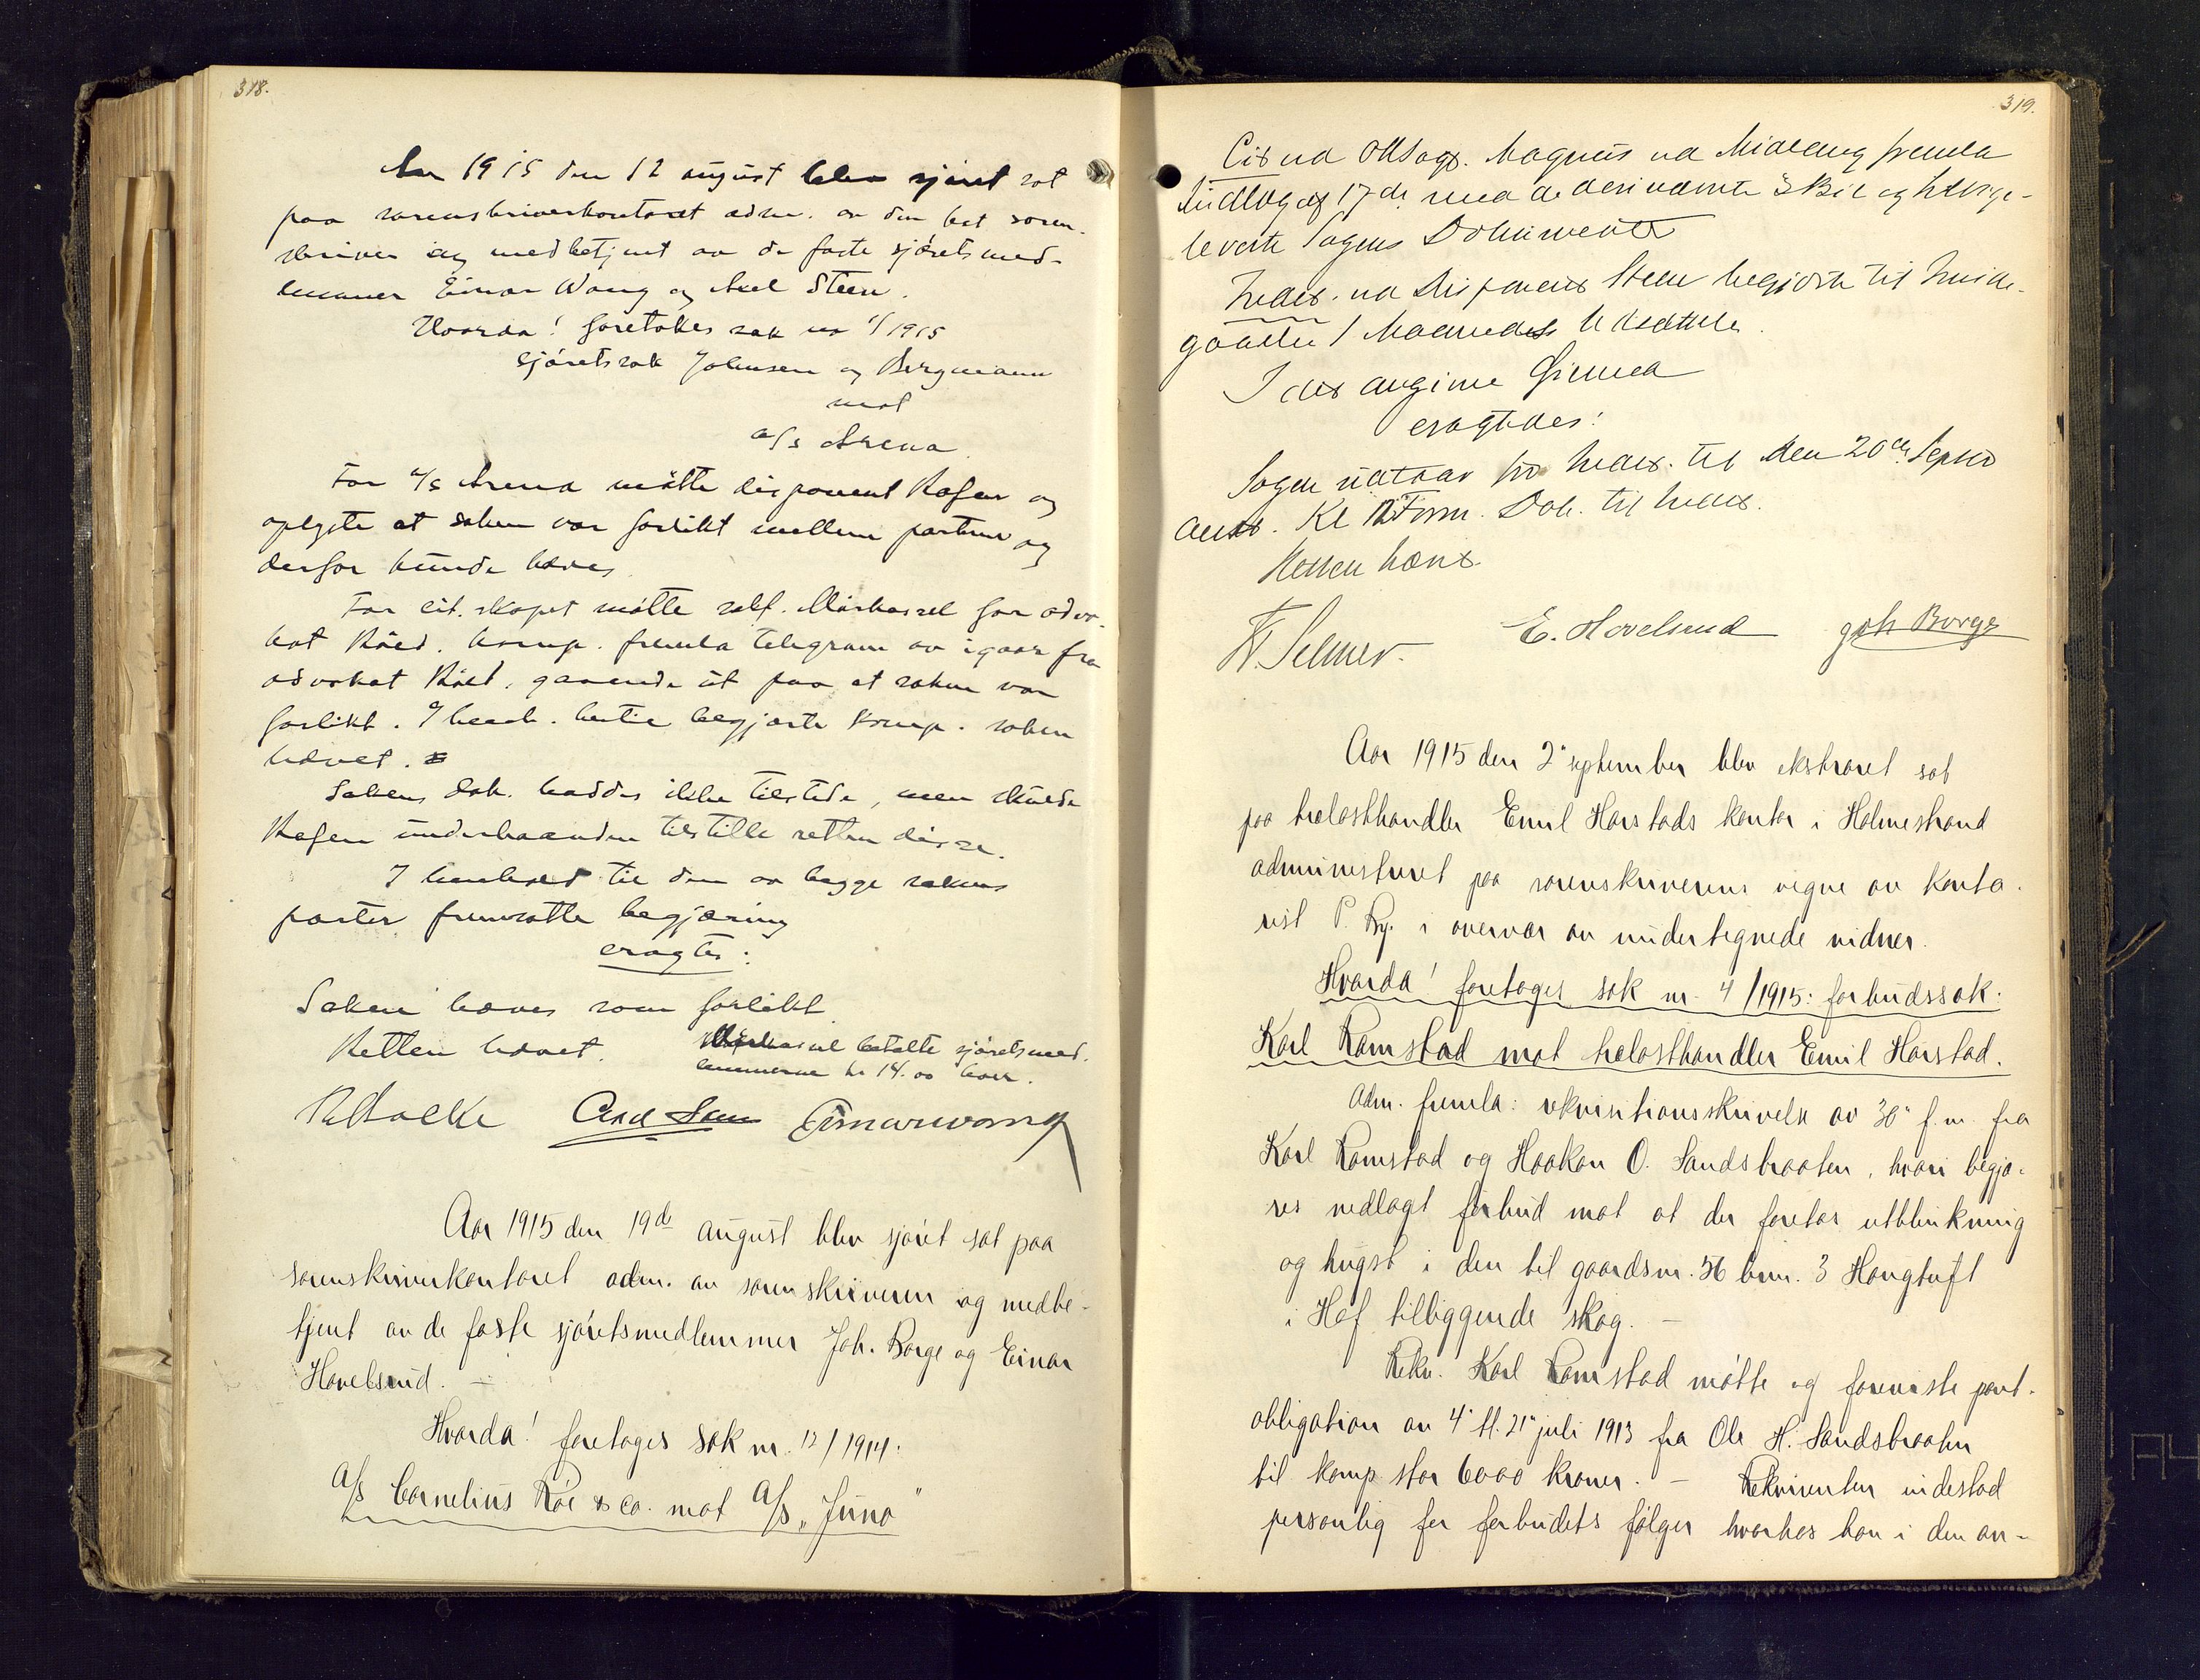 318.
Aar 1915 den 12 august blev sjøret sat
paa sorenskriverkontoret adm. av den bst soren-
skriver og medbetjent av de faste sjøretsmed-
lemmer Einar Wang og Axel Steen.
Hvorda! foretokes sak nr 1/1915
sjøretssak Johnsen og Bergmann
mot
a/s Arena
For a/s Arena møtte disponent Rafen og
oplyste at saken var forlikt mellem partene og
derfor kunde hæves
For cit. skapet møtte sakf. Mørkassel for advo-
kat Røed. komp. fremla telegram av igaar fra
advokat Røed, gaaende ut paa at saken var
forlikt. I henh. hertil begjærte komp. saken
hævet.
Sakens dok. haddes ikke tilstede, men skulde
Rafen underhaanden tilstille retten disse.
I henhold til den av begge sakens
parter fremsatte begjæring
eragtes:
Saken hæves som forlikt
Retten hævet.
Mørkassel betalte sjøretsmed-
lemmerne kr 14.00 hver.
Axel Steen Einar Wang
Aar 1915 den 19de august blev sjøret sat paa
sorenskriverkontoret adm. av sorenskriveren og medbe-
tjent av de faste sjøretsmedlemmer Joh. Borge og Einar
Hovelsrud. —
Hvorda! foretoges sak nr. 12/1914:
A/s Cornelius Røe & co. mot A/s "Juno"
319.
Cit ved Magnus ved fremla
Indlæg af 17de med de deri nævnte Bil og
leverte Sagens Dokumenter
Indct. ved Disponent Steen begjærte til
gaaelse 1 Maaneds Udsættelse.
I det angivne Øiemed
eragtedes:
Sagen udstaar for Indct. til den 20de Septb
anst. Kl 12 Form. Dok. til Indct.
Retten hævet.
Fr. Selmer. E. Hovelsrud Joh Borge
Aar 1915 den 2' september blev ekstraret sat
paa trælasthandler Emil Harstads kontor i Holmestrand
administreret paa sorenskriverens vegne av konto-
rist P. By. i overvær av undertegnede vidner.
Hvorda! foretoges sak nr. 4/1915: forbudssak:
Karl Ramstad mot trælasthandler Emil Harstad.
Adm. fremla: rekvisitionsskrivelse av 30' f.m. fra
Karl Ramstad og Haakon O. Sandsbraaten, hvori begjæ-
res nedlagt forbud mot at der foretas utblinkning
og hugst i den til gaardsnr. 56 brnr. 3 Haugtuft
i Hof tilliggende skog. —
Rekv. Karl Ramstad møtte og foreviste pant-
obligation av 4' tl. 21' juli 1913 fra Ole H. Sandsbraaten
til komp. stor 6000 kroner. — Rekvirenten indestod
personlig for forbudets følger hvorhos han i den an-